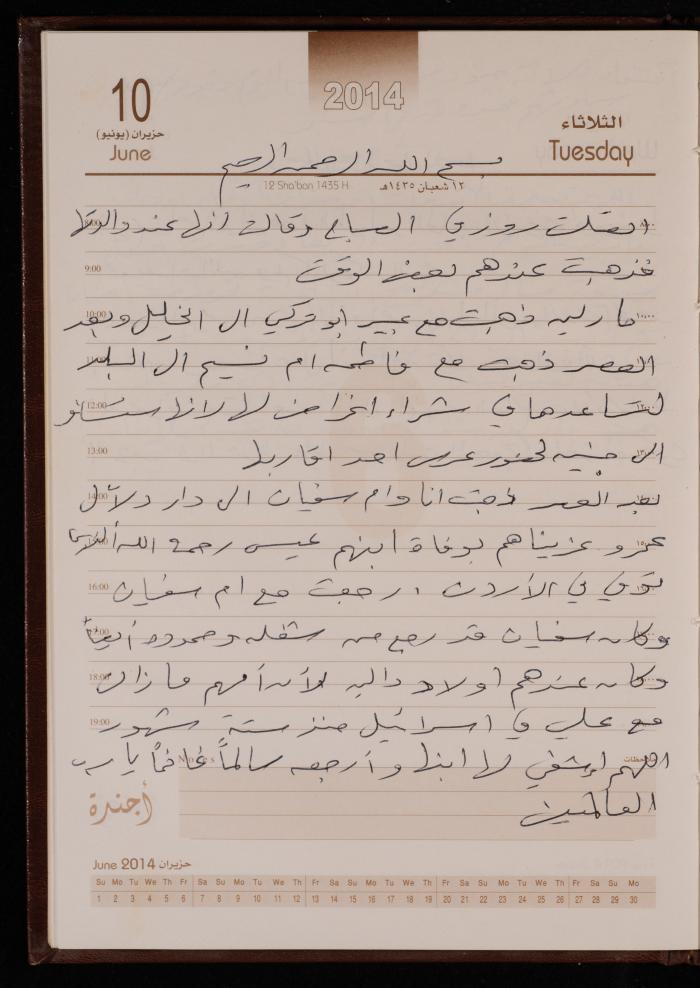 2014
10
حزيران (يونيو)
June
الثلاثاء
Tuesday
بسم الله الرحمن الرحيم
12 Sha'ban 1435 H
١٢ شعبان ١٤٣٥هـ
اتصلت روزي الصباح وقالت أنها عند والدتها
فذهبت عندهم بعض الوقت
ماريه ذهبت مع عبير ابو تركي الى الخليل وبعد
العصر ذهبت مع فاطمه ام نسيم الى البلد
لتساعدها في شراء اغراض لها لانها
الى لحضور عرس احد اقاربها
بعد العصر ذهبت انا وام سفيان الى دار دلال
عمرو عزيناهم بوفاة ابنهم عيسى رحمة الله
توفي في الأردن، رجعت مع ام سفيان
وكان سفيان قد رجع من شغله وممدوح أيضاً
وكان عندهم اولاد داليه لأن أمهم ما زالت
مع علي في اسرائيل منذ ستة شهور
اللهم اشفي لها ابنها وأرجعه سالماً غانماً يا رب
العالمين
8:00
9:00
10:00
12:00
13:00
14:00
16:00
17:00
18:00
19:00
Notes
ملاحظات
أجندة
June 2014 حزيران
Su Mo Tu We Th Fr Sa Su Mo Tu We Th Fr Sa Su Mo Tu We Th Fr Sa Su Mo Tu We Th Fr Sa Su Mo
1 2 3 4 5 6 7 8 9 10 11 12 13 14 15 16 17 18 19 20 21 22 23 24 25 26 27 28 29 30